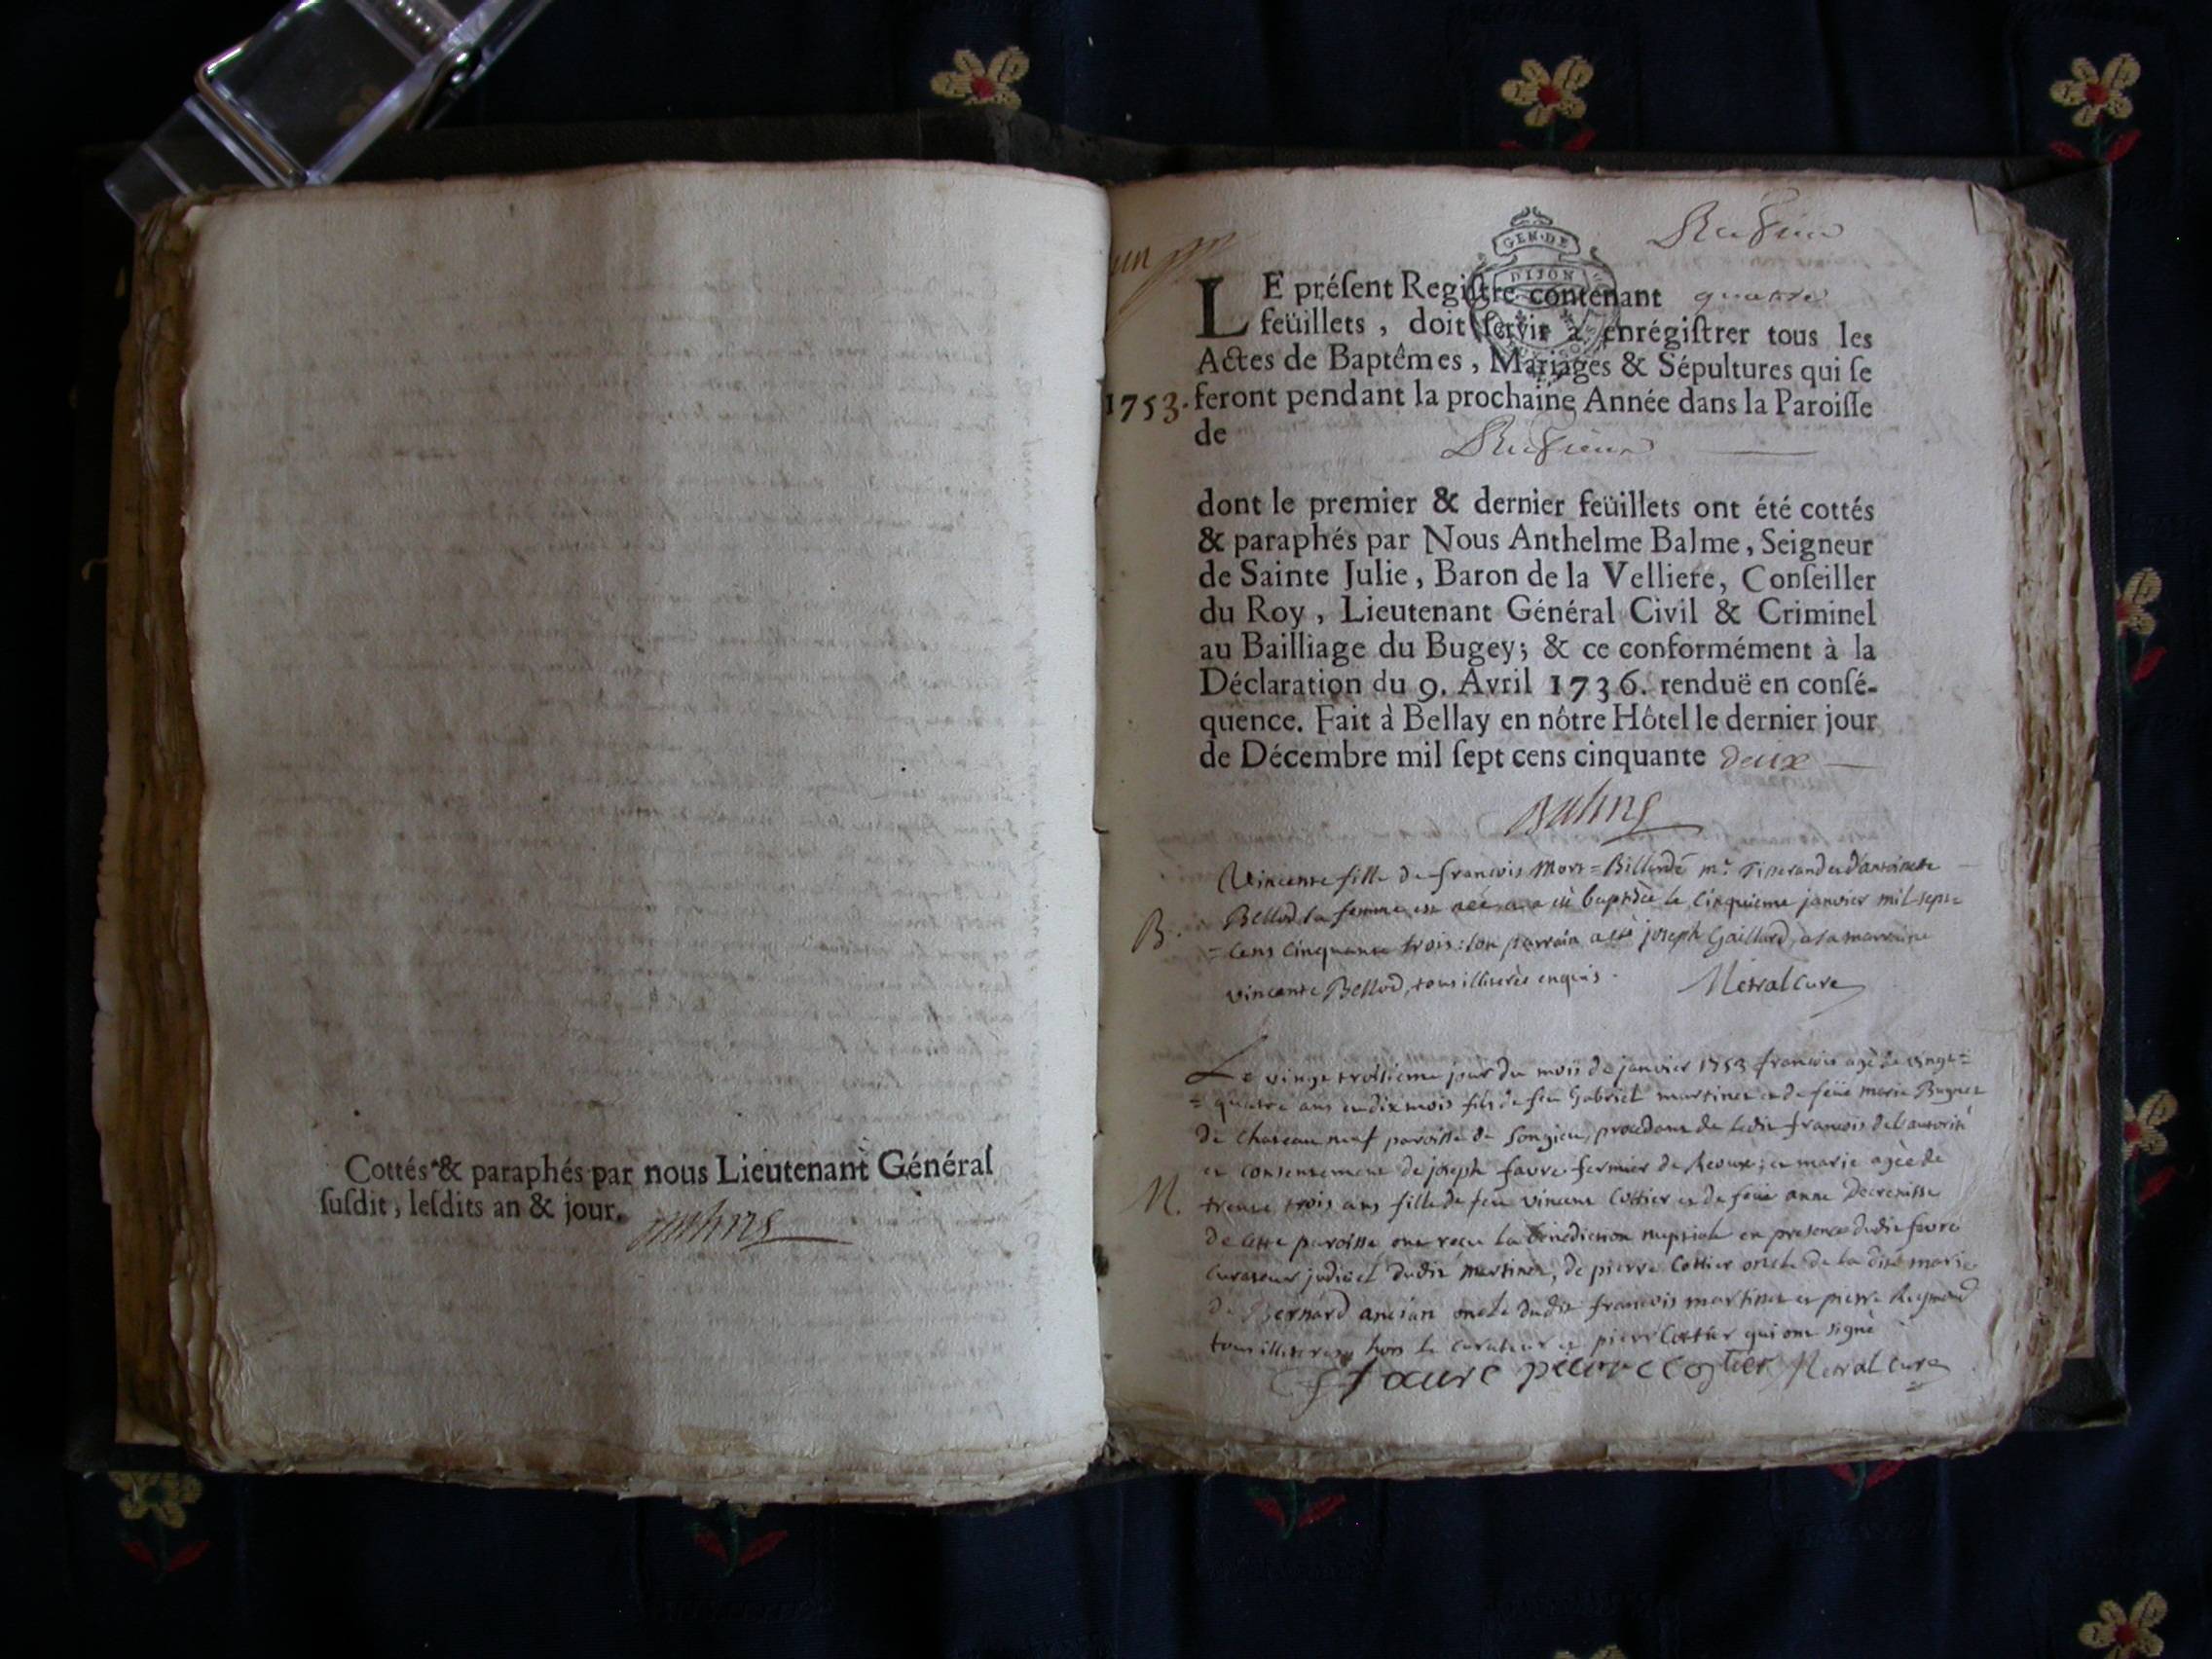 Cottés & paraphés par nous Lieutenant Général
ſuſdit, leſdits an & jour.
un
GEN·DE
DIJON
LE préſent Regiſtre contenant quatre
feüillets, doit ſervir à enrégiſtrer tous les
Actes de Baptêmes, Mariages & Sépultures qui ſe
1753. feront pendant la prochaine Année dans la Paroiſſe
de
dont le premier & dernier feüillets ont été cottés
& paraphés par Nous Anthelme Balme, Seigneur
de Sainte Julie, Baron de la Velliere, Conſeiller
du Roy, Lieutenant Général Civil & Criminel
au Bailliage du Bugey; & ce conformément à la
Déclaration du 9. Avril 1736. renduë en conſé-
quence. Fait à Bellay en nôtre Hôtel le dernier jour
de Décembre mil ſept cens cinquante deux
Balme
Vincente fille de francois Mors=Billerde mr. Tisserand et d'antoinette
B. Bellod sa femme est née et a été baptisée le Cinquieme janvier mil sept
= Cens cinquante trois: son parrain a été joseph Gaillard, et sa marraine
vincente Bellod, tous illiterés enquis. Metral Curé
Le vingt troisieme jour du mois de janvier 1753 francois agé de vingt=
= quatre ans et dix mois fils de feu Gabriel martinet et de feüe marie Bugnet
de Chateauneuf paroisse de Songieu, procedant de ledit francois de l'autorité
et consentement de joseph favre fermier de ; et marie agée de
M. trente trois ans fille de feu vincent Cottier et de feüe anne Decrenisse
de cette paroisse ont reçu la Benediction nuptiale en presence dudit favre
Curateur judiciel dudit martinet, de pierre Cottier oncle de la dite marie
de Bernard ancian oncle dudit francois martinet et pierre Reymond
tous illiterés, hors le curateur et pierre Cottier qui ont signé
faure pierre cogtier Metral curé